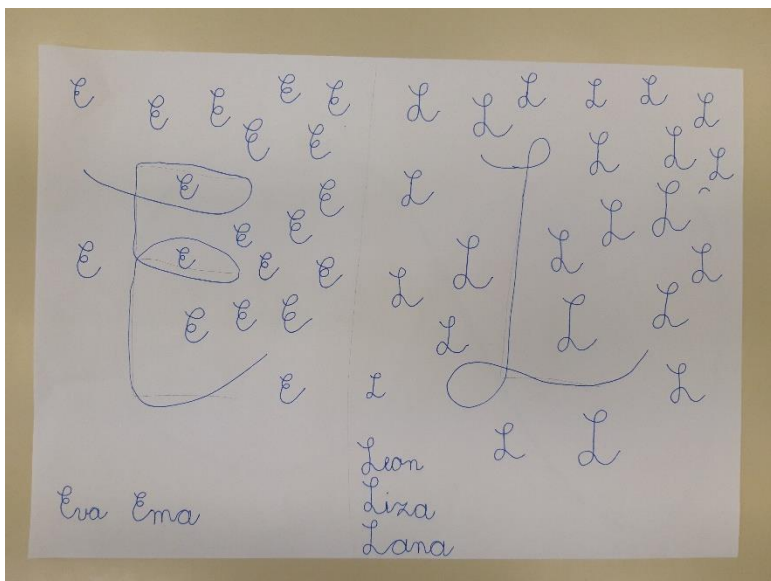 E E E E E
E E
E
E E
E E E
E E E E
E E E
E
Eva Ema
L L L L L L
L
L L L
L L
L L
L L L
L L L
L L
L L
L L
Leon
Liza
Lana